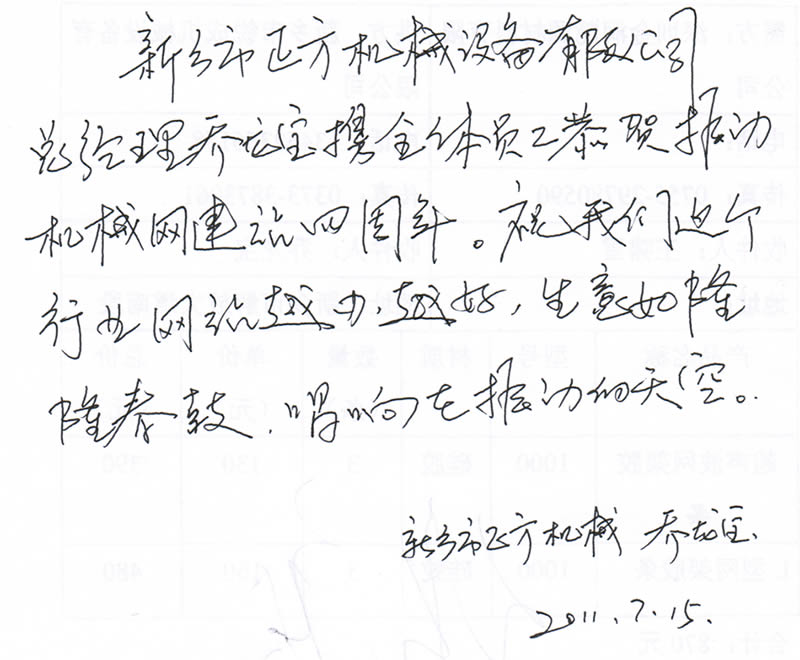 新乡市正方机械设备有限公司
总经理乔龙宝携全体员工恭贺振动
机械网建站四周年。祝我们这个
行业网站越办越好，生意如隆
隆春鼓，唱响在振动的天空。
新乡市正方机械 乔龙宝
2011.7.15.